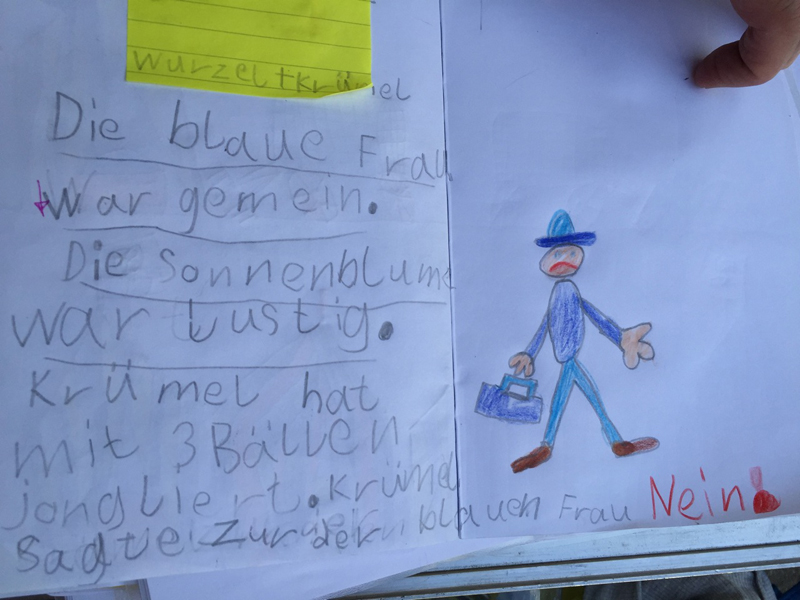 Wurzeltkrümel
Die blaue Frau
War gemein.
Die Sonnenblume
war lustig.
Krümel hat
mit 3 Bällen
jongliert. Krümel
sagte zur blauen Frau Nein!